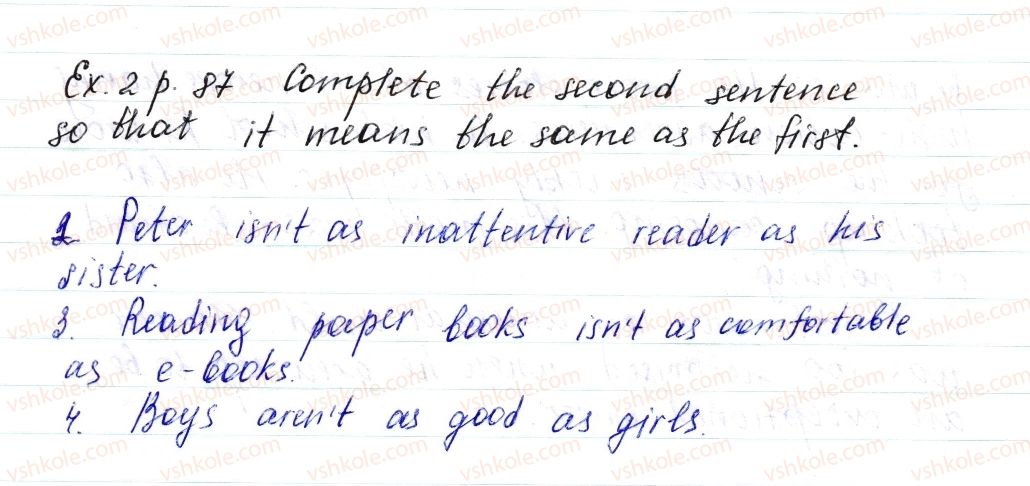 Ex. 2 p. 87 Complete the second sentence
so that it means the same as the first.
2. Peter isn't as inattentive reader as his
sister.
3. Reading paper books isn't as comfortable
as e-books.
4. Boys aren't as good as girls.